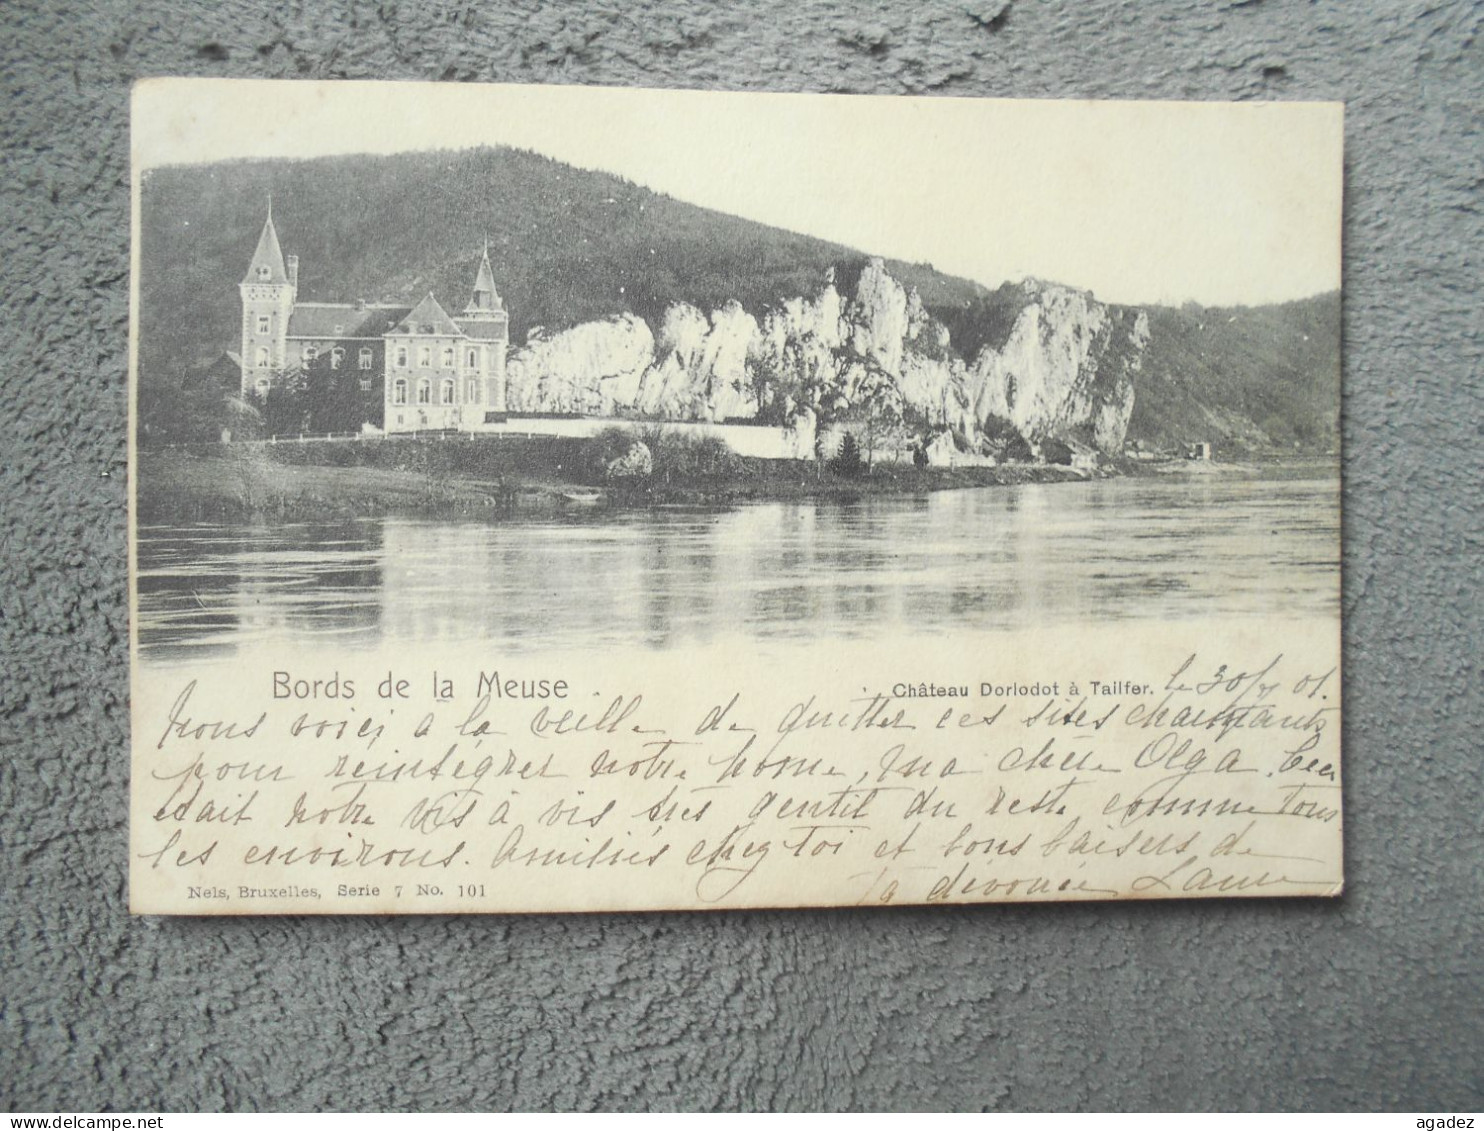 Bords de la Meuse
Château Dorlodot à Tailfer.
le 30/7 01.
Nous voici à la veille de quitter ces sites charmants
pour réintégrer notre home, ma chère Olga. Ceci
était notre vis à vis très gentil du reste comme tous
les environs. Amitiés chez toi et bons baisers de
Ta dévouée Laure
Nels, Bruxelles, Serie 7 No. 101
agadez